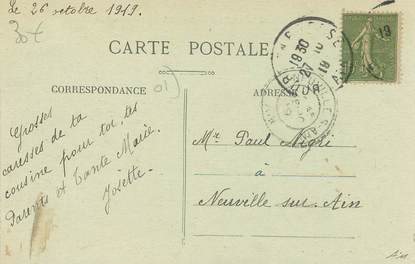 Le 26 octobre 1919.
30€
CARTE POSTALE
CORRESPONDANCE
01)
ADRESSE
Grosses
caresses de ta
cousine pour toi, tes
Parents et Tante Marie.
Josette.
Mr Paul Nigri
à
Neuville sur Ain
Ain